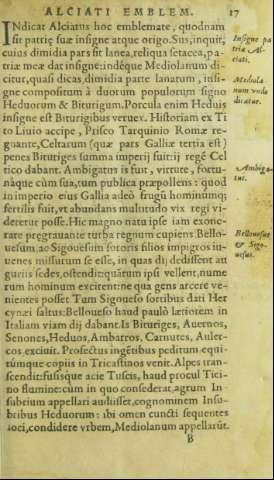 ALCIATI EMBLEM. 17
INdicat Alciatus hoc emblemate, quodnam
sit patrię suæ insigne atque origo. Sus, inquit,
cuius dimidia pars sit lanea, reliqua setacea, pa-
triæ meæ dat insigne: indéque Mediolanum di-
citur, quasi dicas, dimidia parte lanatum, insi-
gne compositum à duorum populorum signo
Heduorum & Biturigum. Porcula enim Heduis
insigne est Biturigibus veruex. Historiam ex Ti
to Liuio accipe, Prisco Tarquinio Romæ re-
gnante, Celtarum (quæ pars Galliæ tertia est)
penes Bituriges summa imperij fuit: ij regé Cel
tico dabant. Ambigatus is fuit, virtute, fortu-
náque cùm sua, tum publica præpollens: quod
in imperio eius Gallia adeò frugũ hominúmq;
fertilis fuit, vt abundans multitudo vix regi vi-
deretur posse. Hic magno natu ipse iam exone-
rare prægrauante turba regnum cupiens Bello-
uesum, ac Sigouesum sororis filios impigros iu-
uenes missurum se esse, in quas dij dedissent au
guriis sedes, ostendit: quãtum ipsi vellent, nume
rum hominum excirent: ne qua gens arcere ve-
nientes posset Tum Sigoueso sortibus dari Her
cynæi saltus: Belloueso haud paulò lætiorem in
Italiam viam dij dabant. Is Bituriges, Auernos,
Senones, Heduos, Ambarros, Carnutes, Auler-
cos, exciuit. Profectus ingẽtibus peditum equi-
túmque copiis in Tricastinos venit. Alpes tran-
scendit: fusisque acie Tuscis, haud procul Tici-
no flumine: cùm in quo consederat, agrum In-
subrium appellari audisset, cognominem Insu-
bribus Heduorum: ibi omen cuncti sequentes
loci, condidere vrbem, Mediolanum appellarũt.
B
Insigne pa
tria Al-
ciati.
Mediola
num vnde
dicatur.
Ambiga-
tus.
Bellouesus
& Sigo-
uesus.